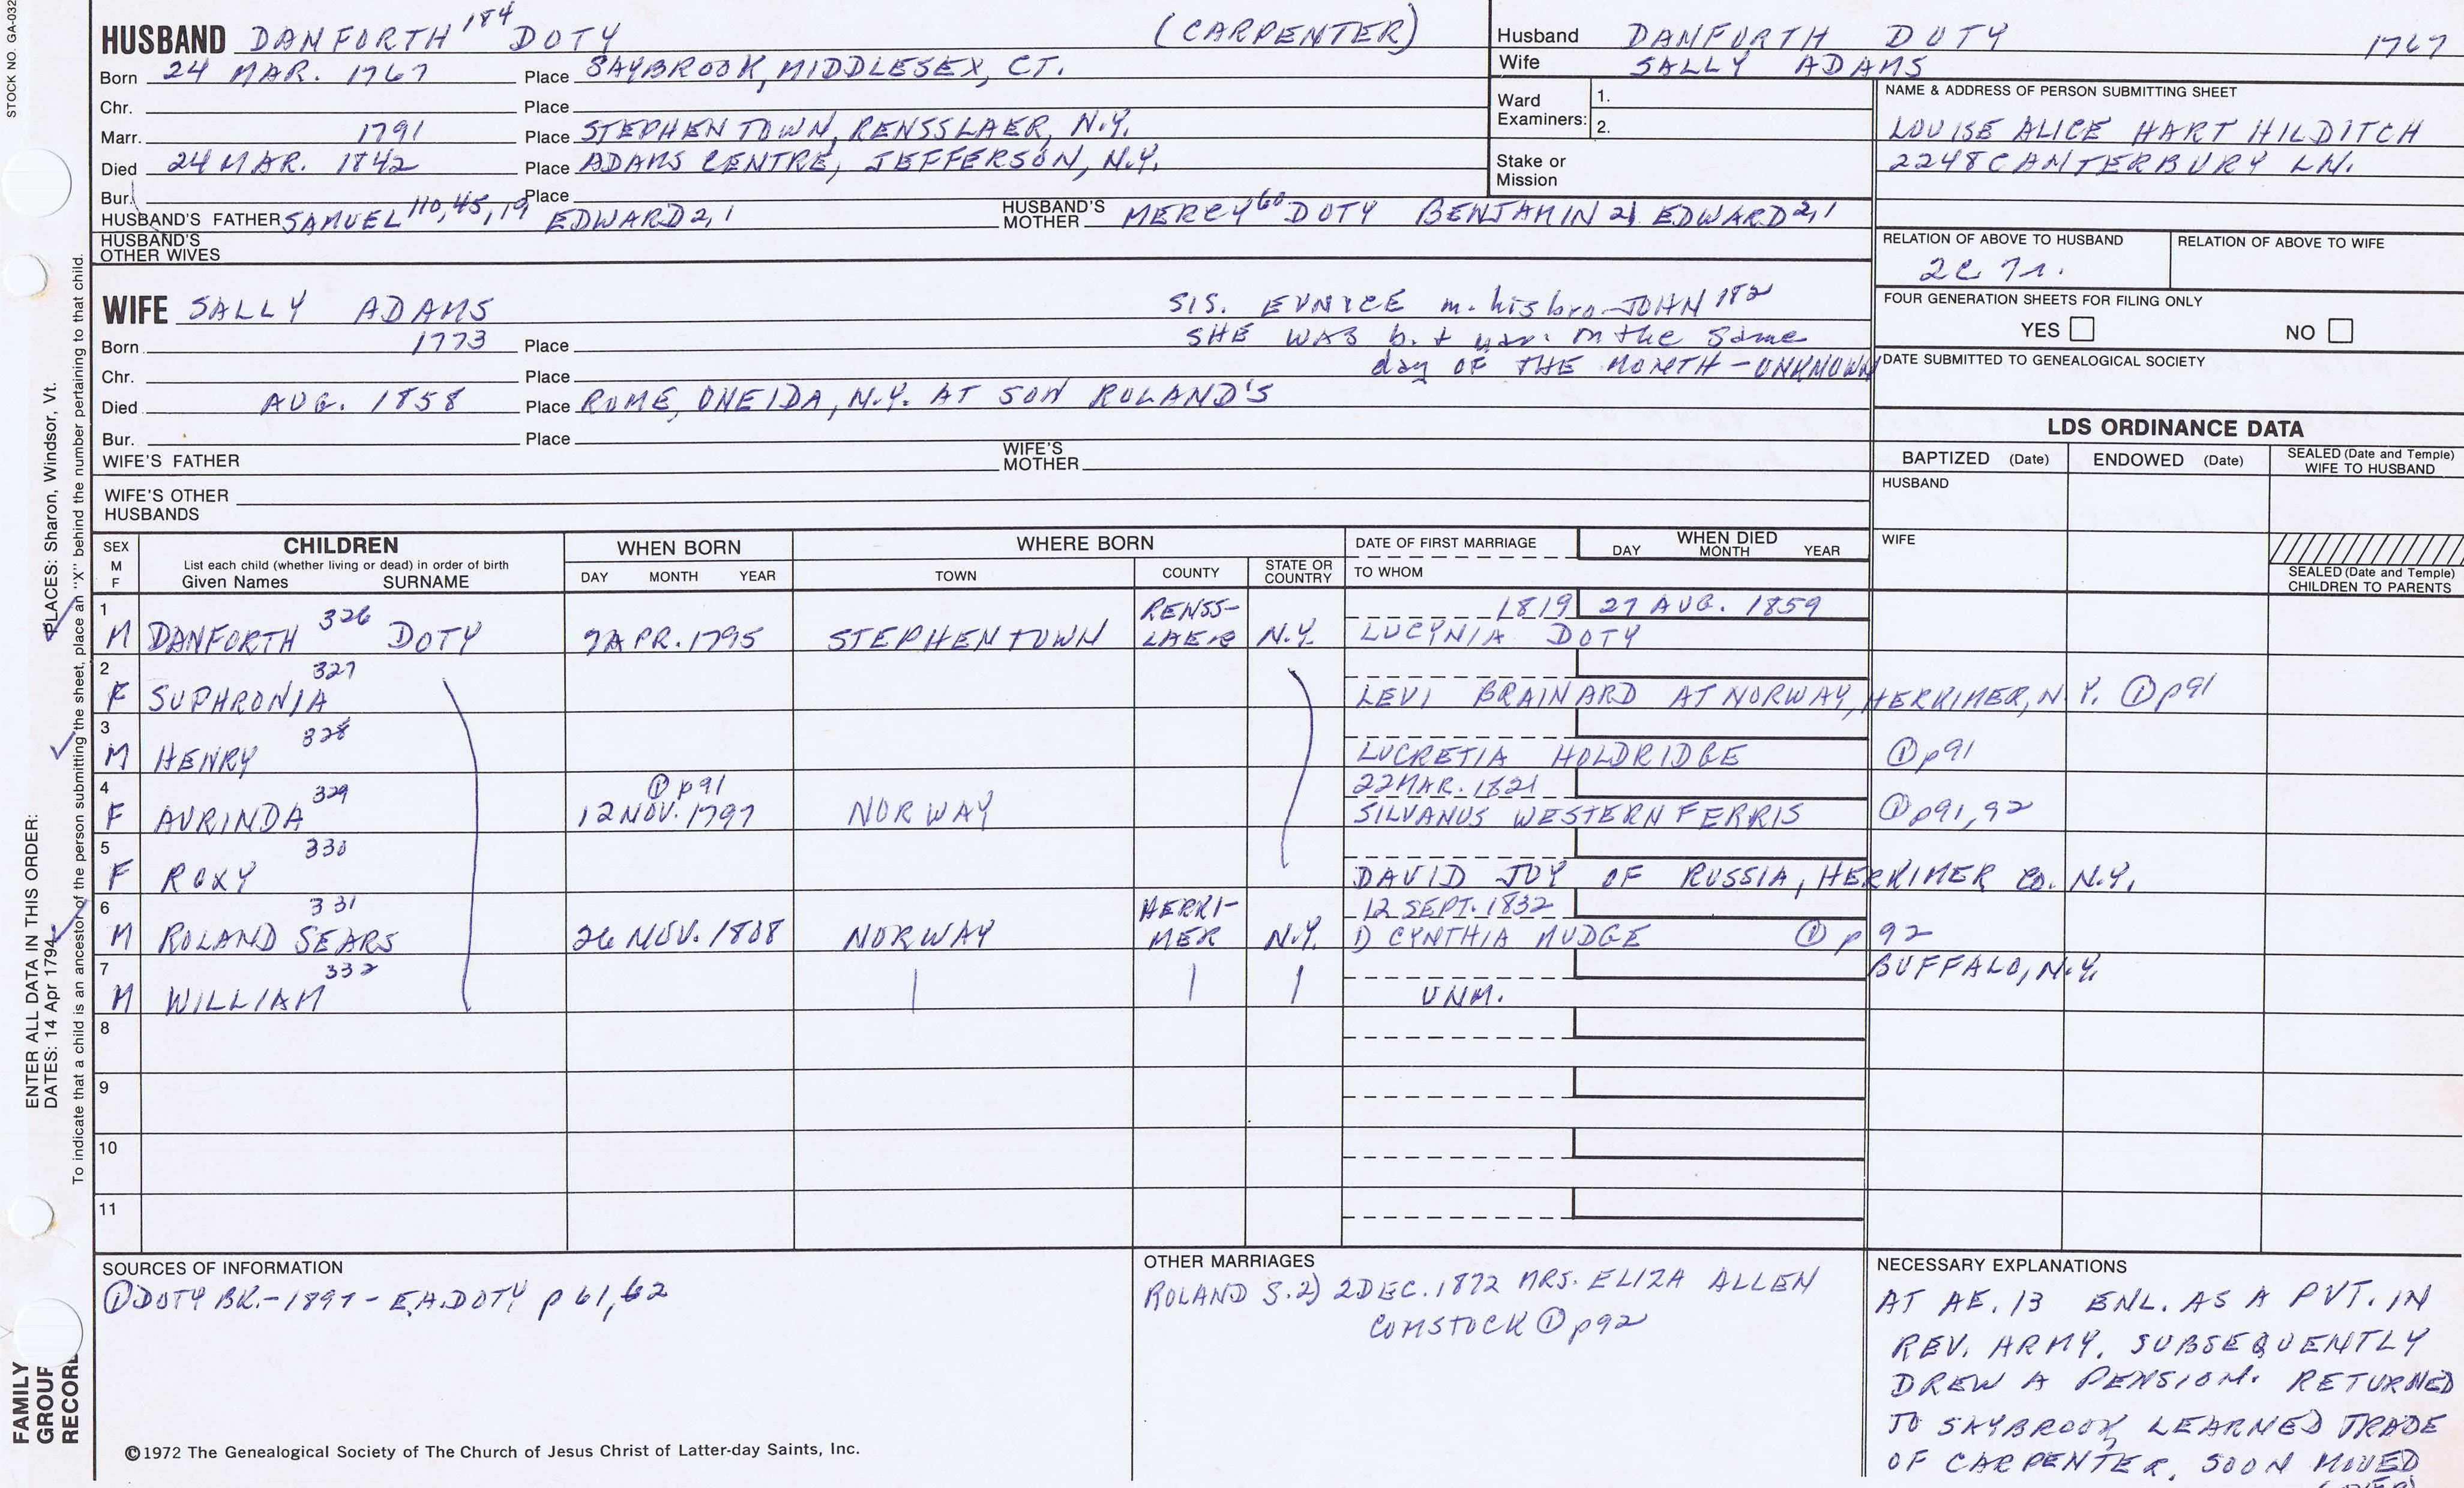 STOCK NO. GA-032
HUSBAND DANFORTH 184 DOTY (CARPENTER)
Born 24 MAR. 1767 Place SAYBROOK, MIDDLESEX, CT.
Chr. Place
Marr. 1791 Place STEPHENTOWN, RENSSLAER, N.Y.
Died 24 MAR. 1842 Place ADAMS CENTRE, JEFFERSON, N.Y.
Bur. Place
HUSBAND'S FATHER SAMUEL 110,45,19 EDWARD 2,1 HUSBAND'S MOTHER MERCY 60 DOTY BENJAMIN 21 EDWARD 2,1
HUSBAND'S OTHER WIVES
Husband DANFORTH DOTY 1767
Wife SALLY ADAMS
Ward Examiners: 1.
2.
Stake or Mission
NAME & ADDRESS OF PERSON SUBMITTING SHEET
LOUISE ALICE HART HILDITCH
2248 CANTERBURY LN.
RELATION OF ABOVE TO HUSBAND RELATION OF ABOVE TO WIFE
2C 7r.
FOUR GENERATION SHEETS FOR FILING ONLY
YES NO
DATE SUBMITTED TO GENEALOGICAL SOCIETY
WIFE SALLY ADAMS SIS. EUNICE m. his bro JOHN 182
Born 1773 Place SHE WAS b. + m. on the same
Chr. Place day OF THE MONTH - UNKNOWN
Died AUG. 1858 Place ROME, ONEIDA, N.Y. AT SON ROLAND'S
Bur. Place
WIFE'S FATHER WIFE'S MOTHER
WIFE'S OTHER HUSBANDS
LDS ORDINANCE DATA
BAPTIZED (Date) ENDOWED (Date) SEALED (Date and Temple) WIFE TO HUSBAND
HUSBAND
WIFE
SEALED (Date and Temple) CHILDREN TO PARENTS
SEX M F CHILDREN List each child (whether living or dead) in order of birth Given Names SURNAME
WHEN BORN DAY MONTH YEAR
WHERE BORN TOWN COUNTY STATE OR COUNTRY
DATE OF FIRST MARRIAGE TO WHOM
WHEN DIED DAY MONTH YEAR
1 RENSS- 1819 27 AUG. 1859
M DANFORTH 326 DOTY 7 APR. 1795 STEPHENTOWN LAER N.Y. LUCYNIA DOTY
2 327
F SOPHRONIA LEVI BRAINARD AT NORWAY, HERKIMER, N.Y. ① p91
3 328
M HENRY LUCRETIA HOLDRIDGE ① p91
4 329 ① p91 22 MAR. 1821
F AURINDA 12 NOV. 1797 NORWAY SILVANUS WESTERN FERRIS ① p91,92
5 330
F ROXY DAVID JOY OF RUSSIA, HERKIMER CO. N.Y.
6 331 HERKI- 12 SEPT. 1832
M ROLAND SEARS 26 NOV. 1808 NORWAY MER N.Y. 1) CYNTHIA MUDGE ① p 92
7 332 BUFFALO, N.Y.
M WILLIAM | | | UNM.
8
9
10
11
SOURCES OF INFORMATION
① DOTY BK.-1897 - E.A. DOTY p 61,62
OTHER MARRIAGES
ROLAND S. 2) 2 DEC. 1872 MRS. ELIZA ALLEN
COMSTOCK ① p92
NECESSARY EXPLANATIONS
AT AE. 13 ENL. AS A PVT. IN
REV. ARMY. SUBSEQUENTLY
DREW A PENSION. RETURNED
TO SAYBROOK, LEARNED TRADE
OF CARPENTER, SOON MOVED
©1972 The Genealogical Society of The Church of Jesus Christ of Latter-day Saints, Inc.
FAMILY GROUP RECORD
ENTER ALL DATA IN THIS ORDER:
DATES: 14 Apr 1794 PLACES: Sharon, Windsor, Vt.
To indicate that a child is an ancestor of the person submitting the sheet, place an "X" behind the number pertaining to that child.